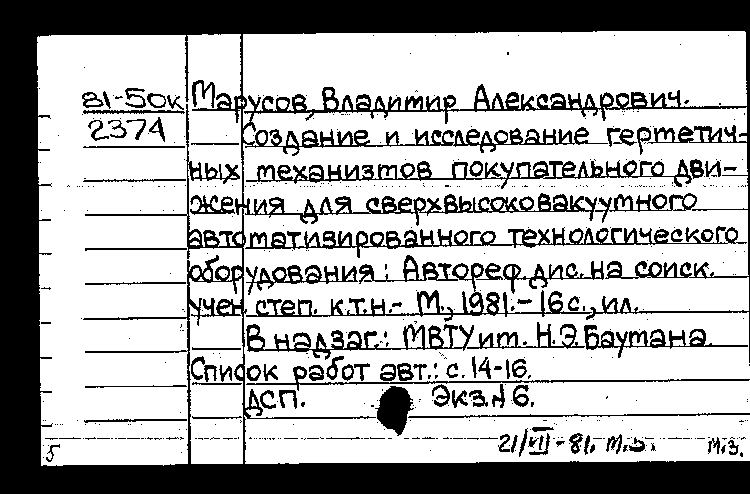 81-50к Марусов, Владимир Александрович.
2374 Создание и исследование герметич-
ных механизмов покупательного дви-
жения для сверхвысоковакуумного
автоматизированного технологического
оборудования: Автореф. дис. на соиск.
учен. степ. к.т.н.- М., 1981.- 16 с., ил.
В надзаг.: МВТУ им. Н.Э. Баумана.
Список работ авт.: с. 14-16.
ДСП. Экз. № 6.
21/VII-81. м.з.
5